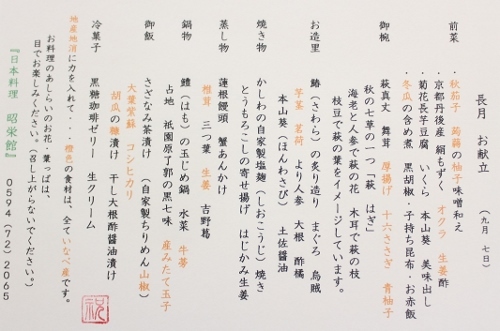 長月 お献立 (九月 七日)
前菜 ・秋茄子 蒟蒻の柚子味噌和え
・京都丹後産 絹もずく オクラ 生姜酢
・菊花長芋豆腐 いくら 本山葵 美味出し
・冬瓜の含め煮 黒胡椒・子持ち昆布・お赤飯
御椀 萩真丈 舞茸 厚揚げ 十六ささぎ 青柚子
秋の七草の一つ「萩 はぎ」
海老と人参で萩の花 木耳で萩の枝
枝豆で萩の葉をイメージしています。
お造里 鰆(さわら)の炙り造り まぐろ 烏賊
芋茎 茗荷 より人参 大根 酢橘
本山葵(ほんわさび) 土佐醤油
焼き物 かしわの自家製塩麹(しおこうじ)焼き
とうもろこしの寄せ揚げ はじかみ生姜
蒸し物 蓮根饅頭 蟹あんかけ
椎茸 三つ葉 生姜 吉野葛
鍋物 鱧(はも)の玉じめ鍋 水菜 牛蒡
占地 祇園原了郭の黒七味 産みたて玉子
御飯 さざなみ茶漬け (自家製ちりめん山椒)
大葉紫蘇 コシヒカリ
胡瓜の糠漬け 干し大根酢醤油漬け
冷菓子 黒糖珈琲ゼリー 生クリーム
地産地消に力を入れて・・橙色の食材は、全ていなべ産です。
お料理のあしらいのお花・葉っぱは、
目でお楽しみください。(召し上がらないでください。)
『日本料理 昭栄館』 0594(72)2065
祝